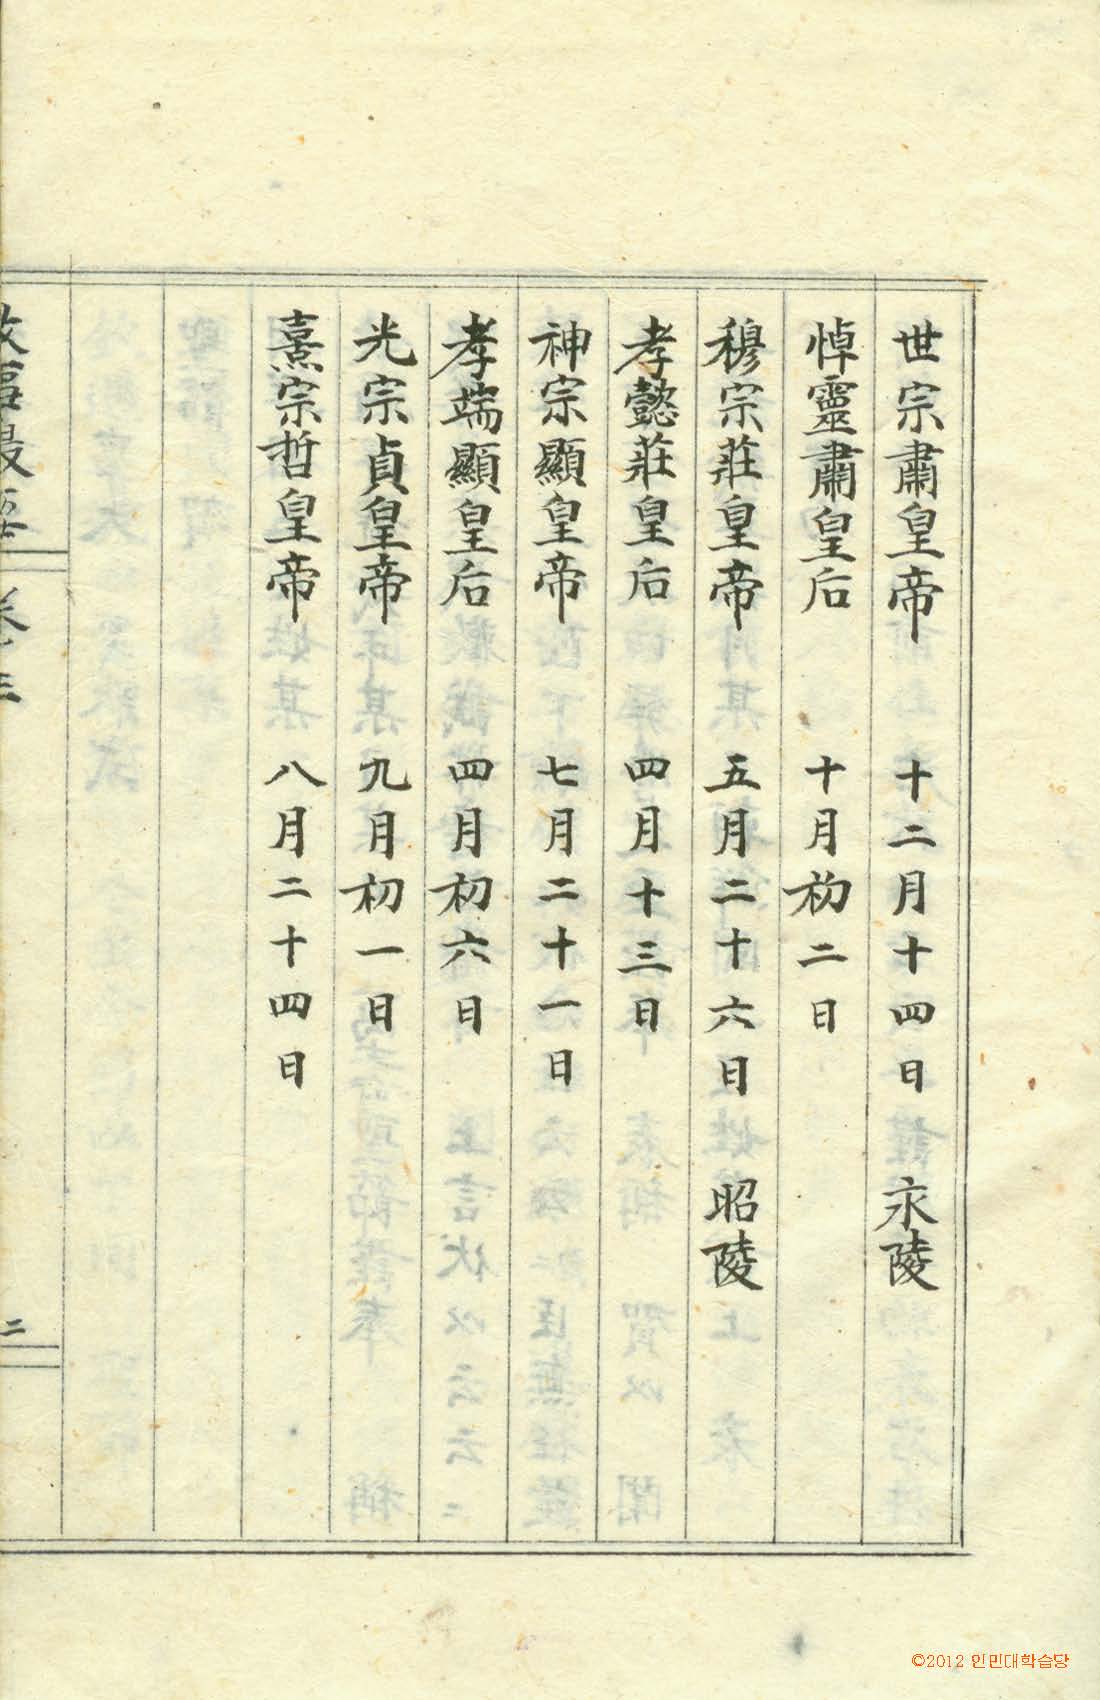 世宗肅皇帝 十二月十四日 永陵
悼靈肅皇后 十月初二日
穆宗莊皇帝 五月二十六日 昭陵
孝懿莊皇后 四月十三日
神宗顯皇帝 七月二十一日
孝端顯皇后 四月初六日
光宗貞皇帝 九月初一日
熹宗哲皇帝 八月二十四日
二
©2012 인민대학습당